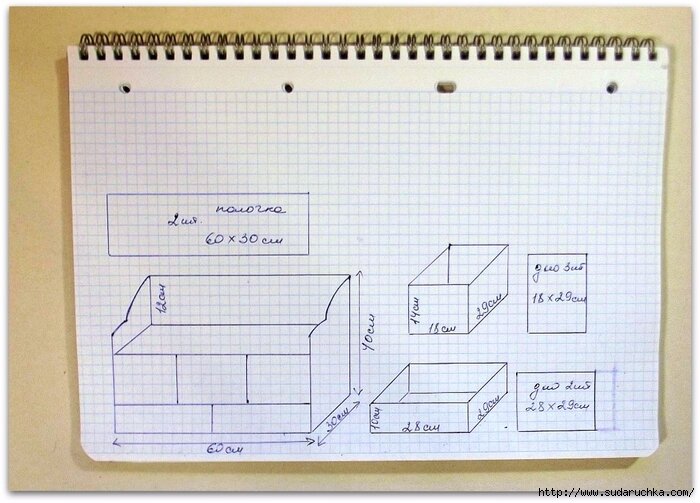 полочка
2 шт.
60 x 30 см
12см
40см
30см
60 см
14см
18см
29см
дно 3шт
18 x 29см
10см
28 см
29см
дно 2шт
28 x 29см
http://www.sudaruchka.com/